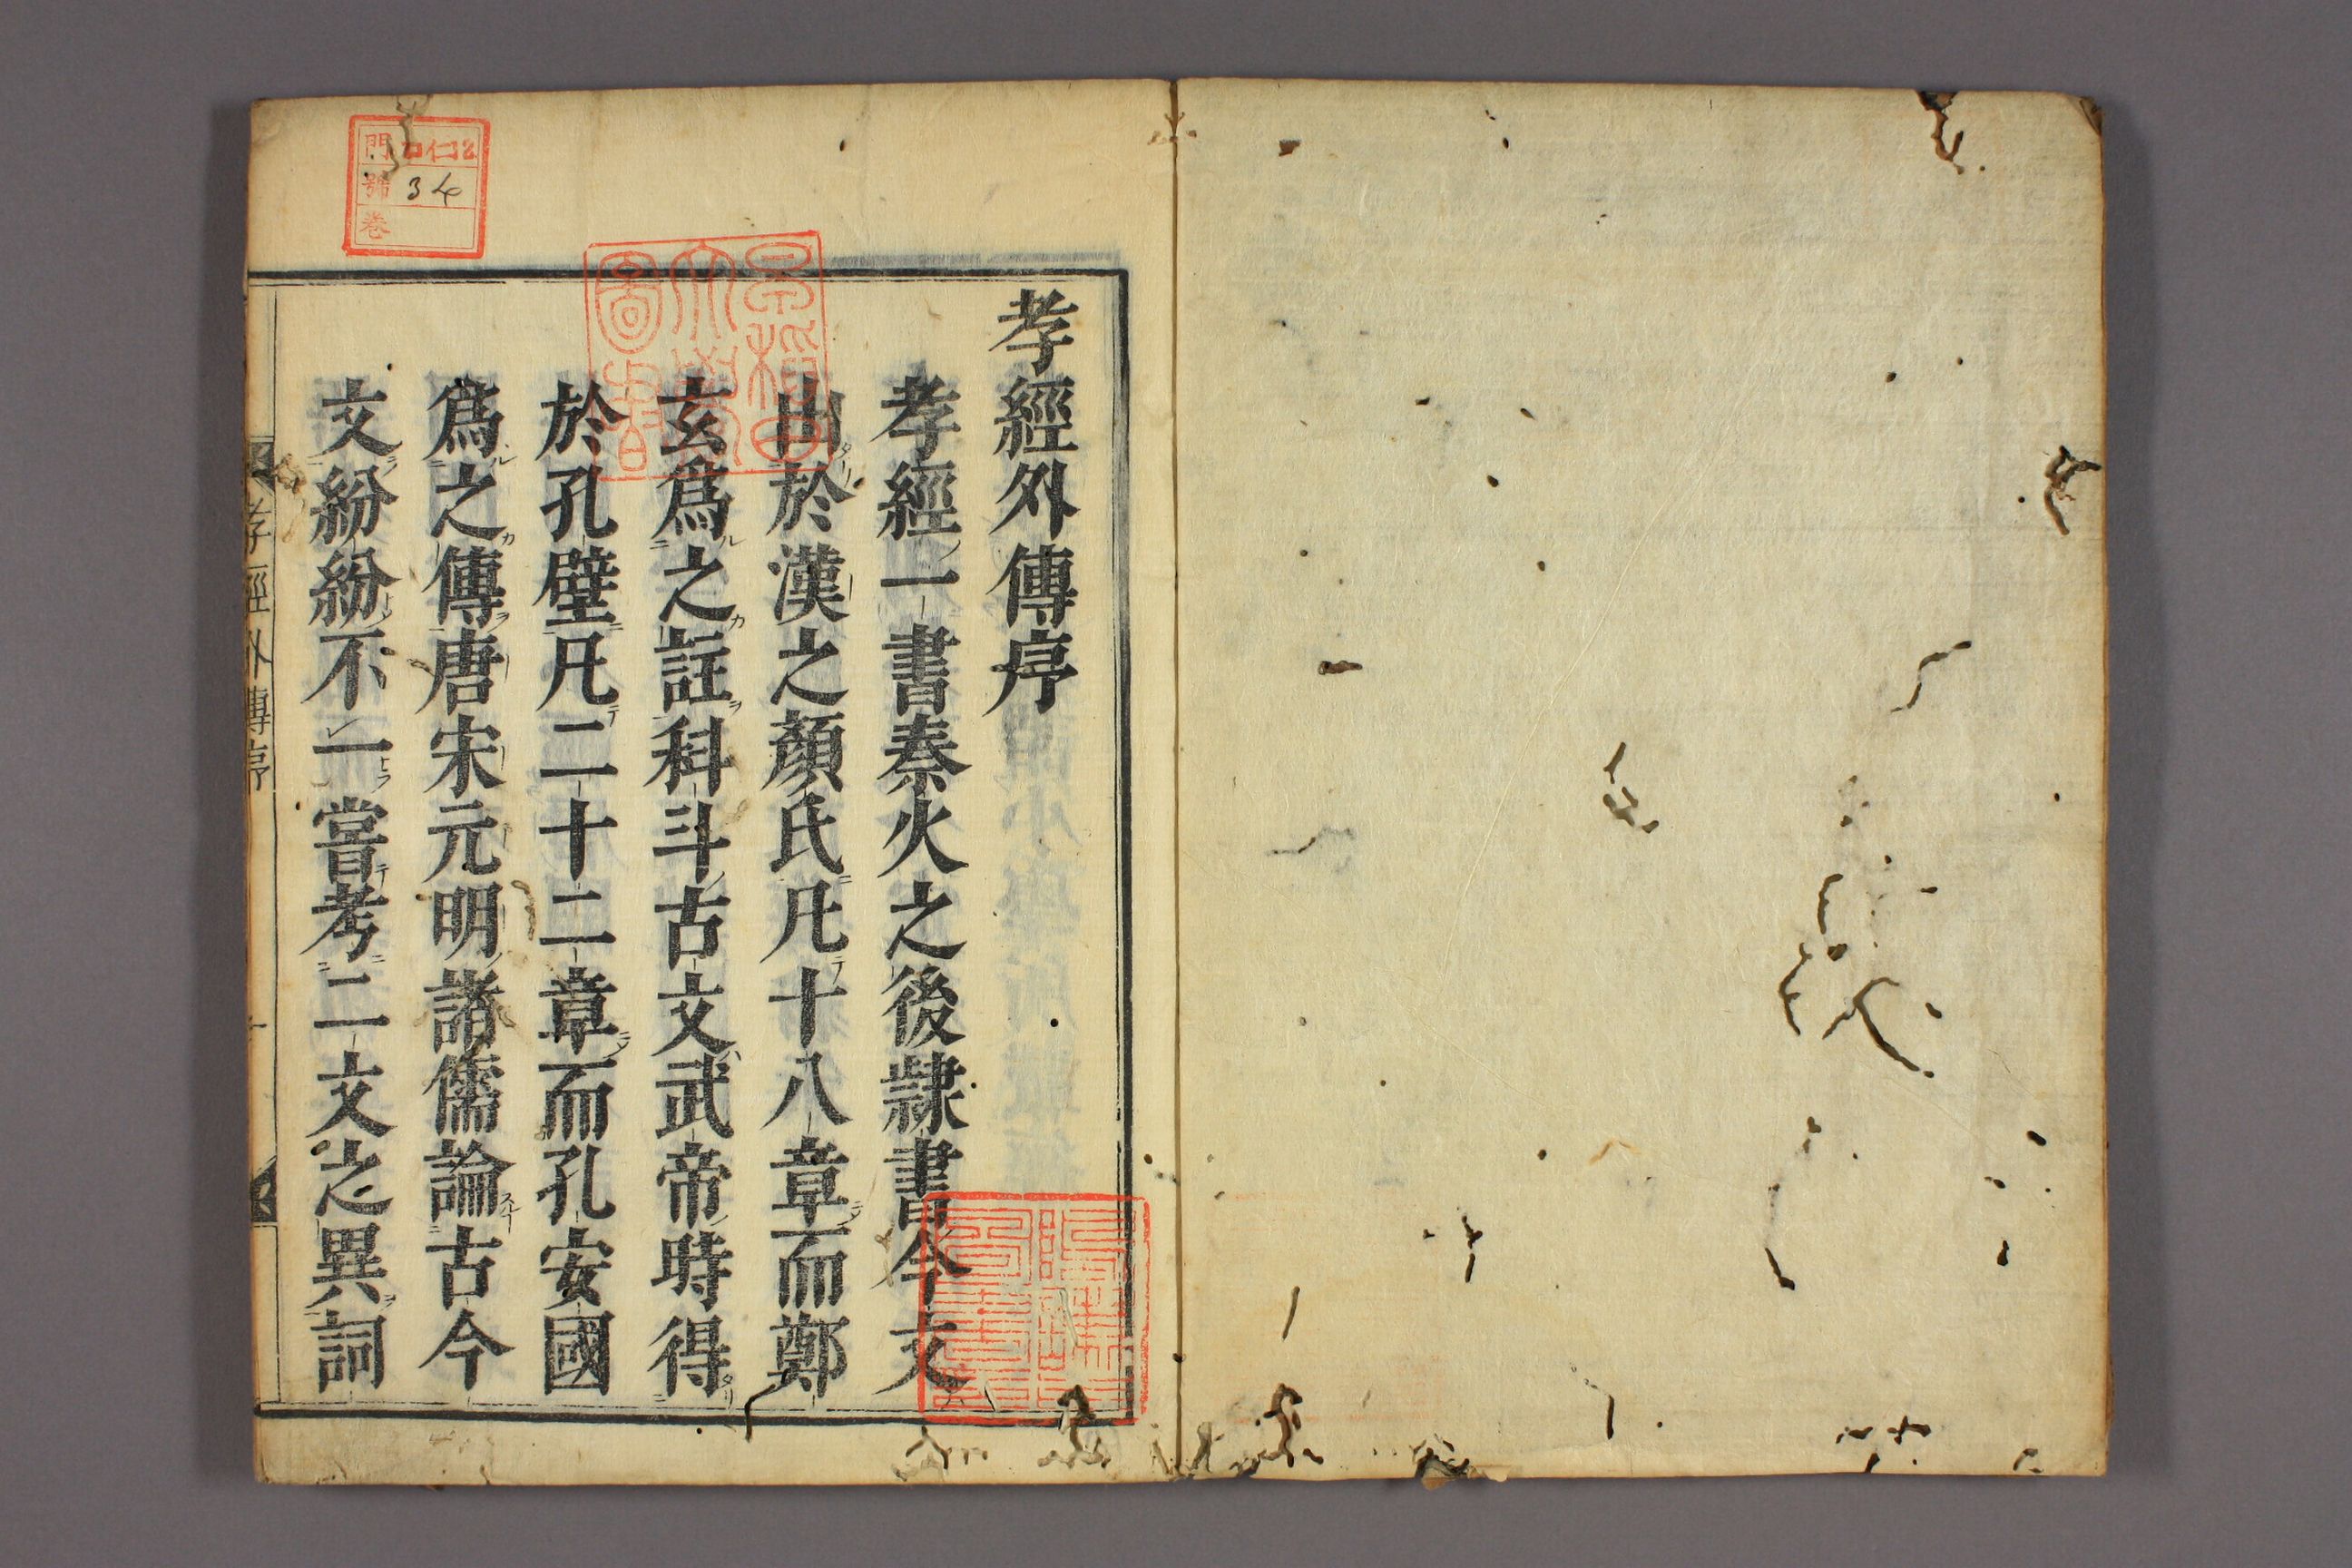 孝經外傳序
孝經一書秦火之後隷書今文
出於漢之顏氏凡十八章而鄭
玄爲之註科斗古文武帝時得
於孔壁凡二十二章而孔安國
爲之傳唐宋元明諸儒論古今
文紛紛不一嘗考二文之異詞
孝經外傳序
門
號 34
卷